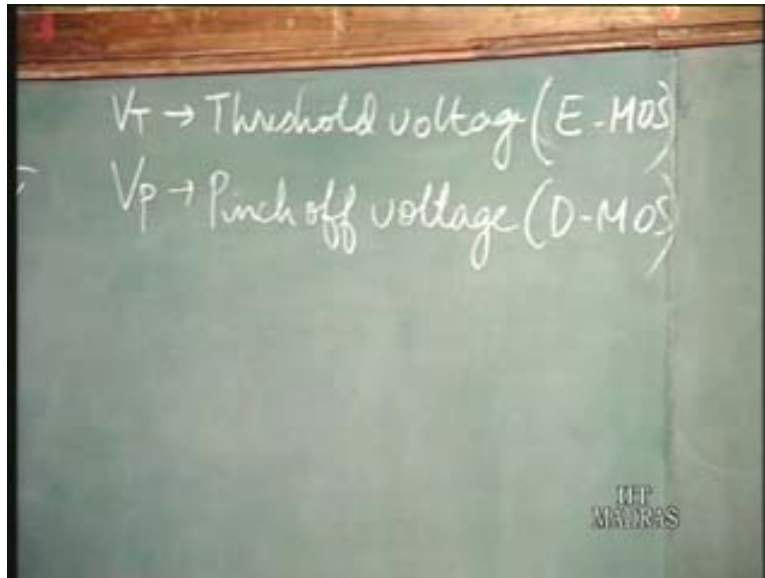 VT → Threshold voltag (E-MOS)
Vp → Pinch off voltage (D-MOS)
IIT
MADRAS